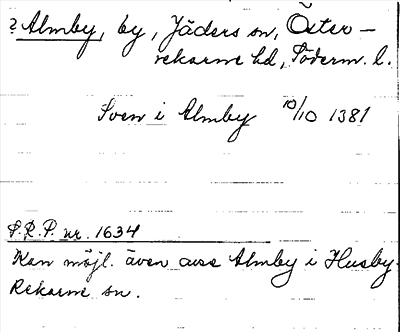 ? Almby, by, Jäders sn, Öster-
rekarne hd, Söderm. l.
Sven i Almby 10/10 1381
S.R.P. nr. 1634
Kan möjl. även avse Almby i Husby-
Rekarne sn.